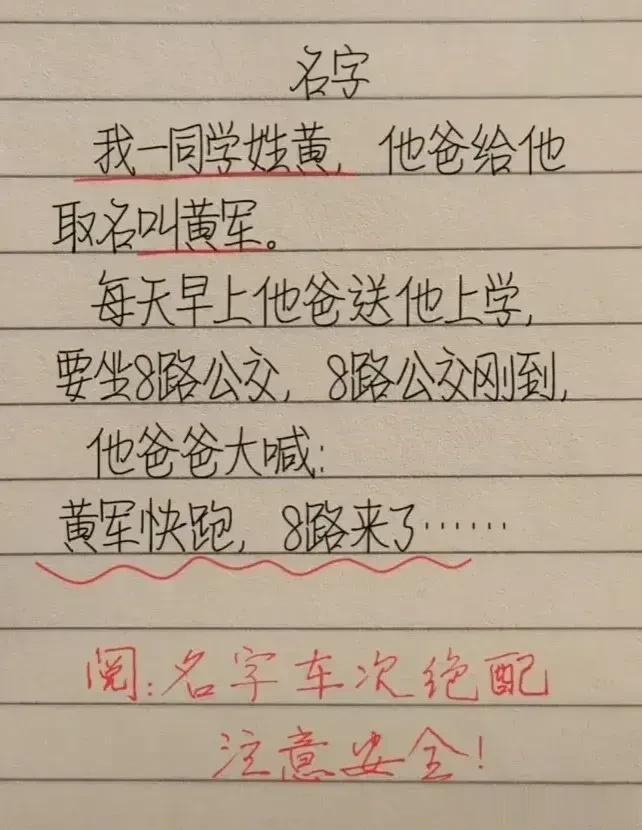 名字
我一同学姓黄，他爸给他
取名叫黄军。
每天早上他爸送他上学，
要坐8路公交，8路公交刚到，
他爸爸大喊：
黄军快跑，8路来了……
阅：名字车次绝配
注意安全！